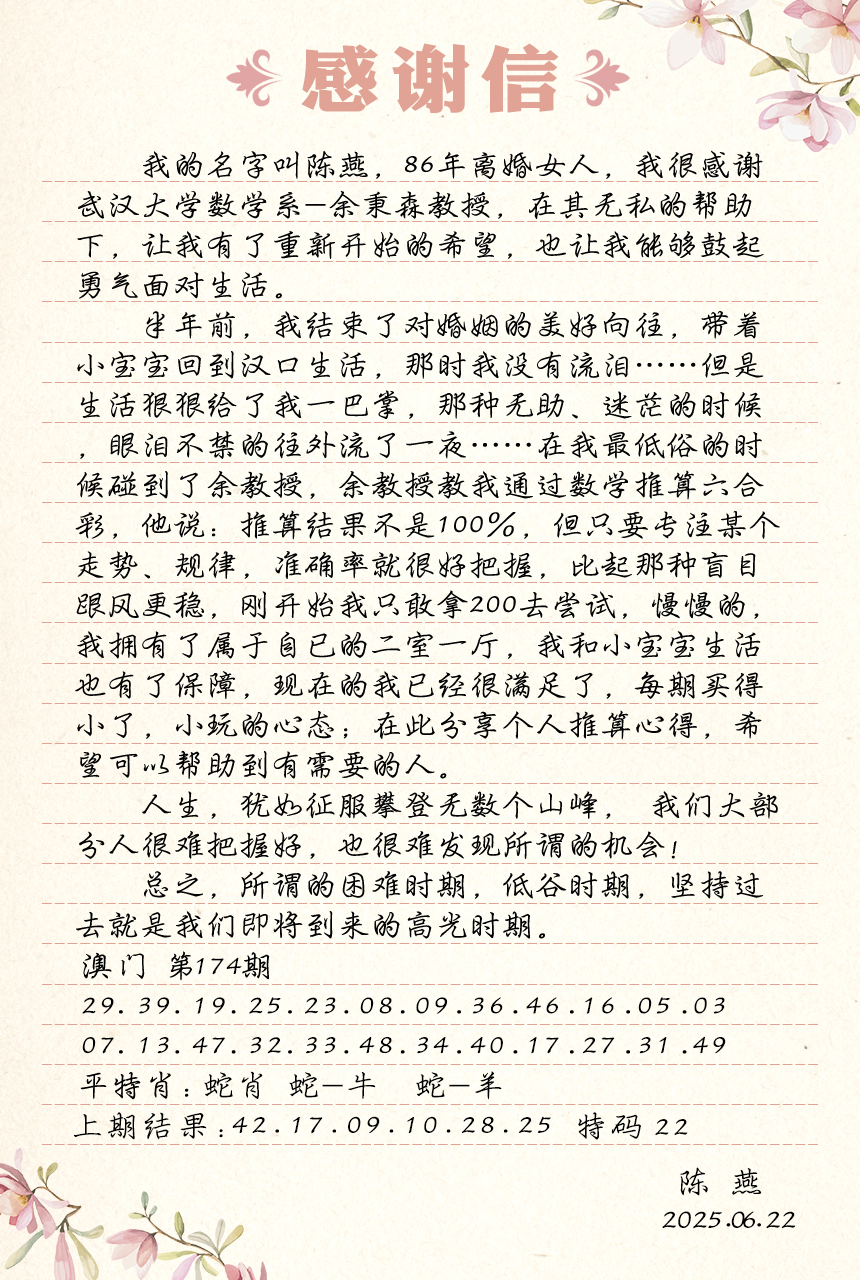 感谢信
我的名字叫陈燕，86年离婚女人，我很感谢
武汉大学数学系—余秉森教授，在其无私的帮助
下，让我有了重新开始的希望，也让我能够鼓起
勇气面对生活。
半年前，我结束了对婚姻的美好向往，带着
小宝宝回到汉口生活，那时我没有流泪……但是
生活狠狠给了我一巴掌，那种无助、迷茫的时候
，眼泪不禁的往外流了一夜……在我最低俗的时
候碰到了余教授，余教授教我通过数学推算六合
彩，他说：推算结果不是100%，但只要专注某个
走势、规律，准确率就很好把握，比起那种盲目
跟风更稳，刚开始我只敢拿200去尝试，慢慢的，
我拥有了属于自已的二室一厅，我和小宝宝生活
也有了保障，现在的我已经很满足了，每期买得
小了，小玩的心态；在此分享个人推算心得，希
望可以帮助到有需要的人。
人生，犹如征服攀登无数个山峰， 我们大部
分人很难把握好，也很难发现所谓的机会！
总之，所谓的困难时期，低谷时期，坚持过
去就是我们即将到来的高光时期。
澳门 第174期
29.39.19.25.23.08.09.36.46.16.05.03
07.13.47.32.33.48.34.40.17.27.31.49
平特肖：蛇肖 蛇—牛 蛇—羊
上期结果：42.17.09.10.28.25 特码 22
陈 燕
2025.06.22